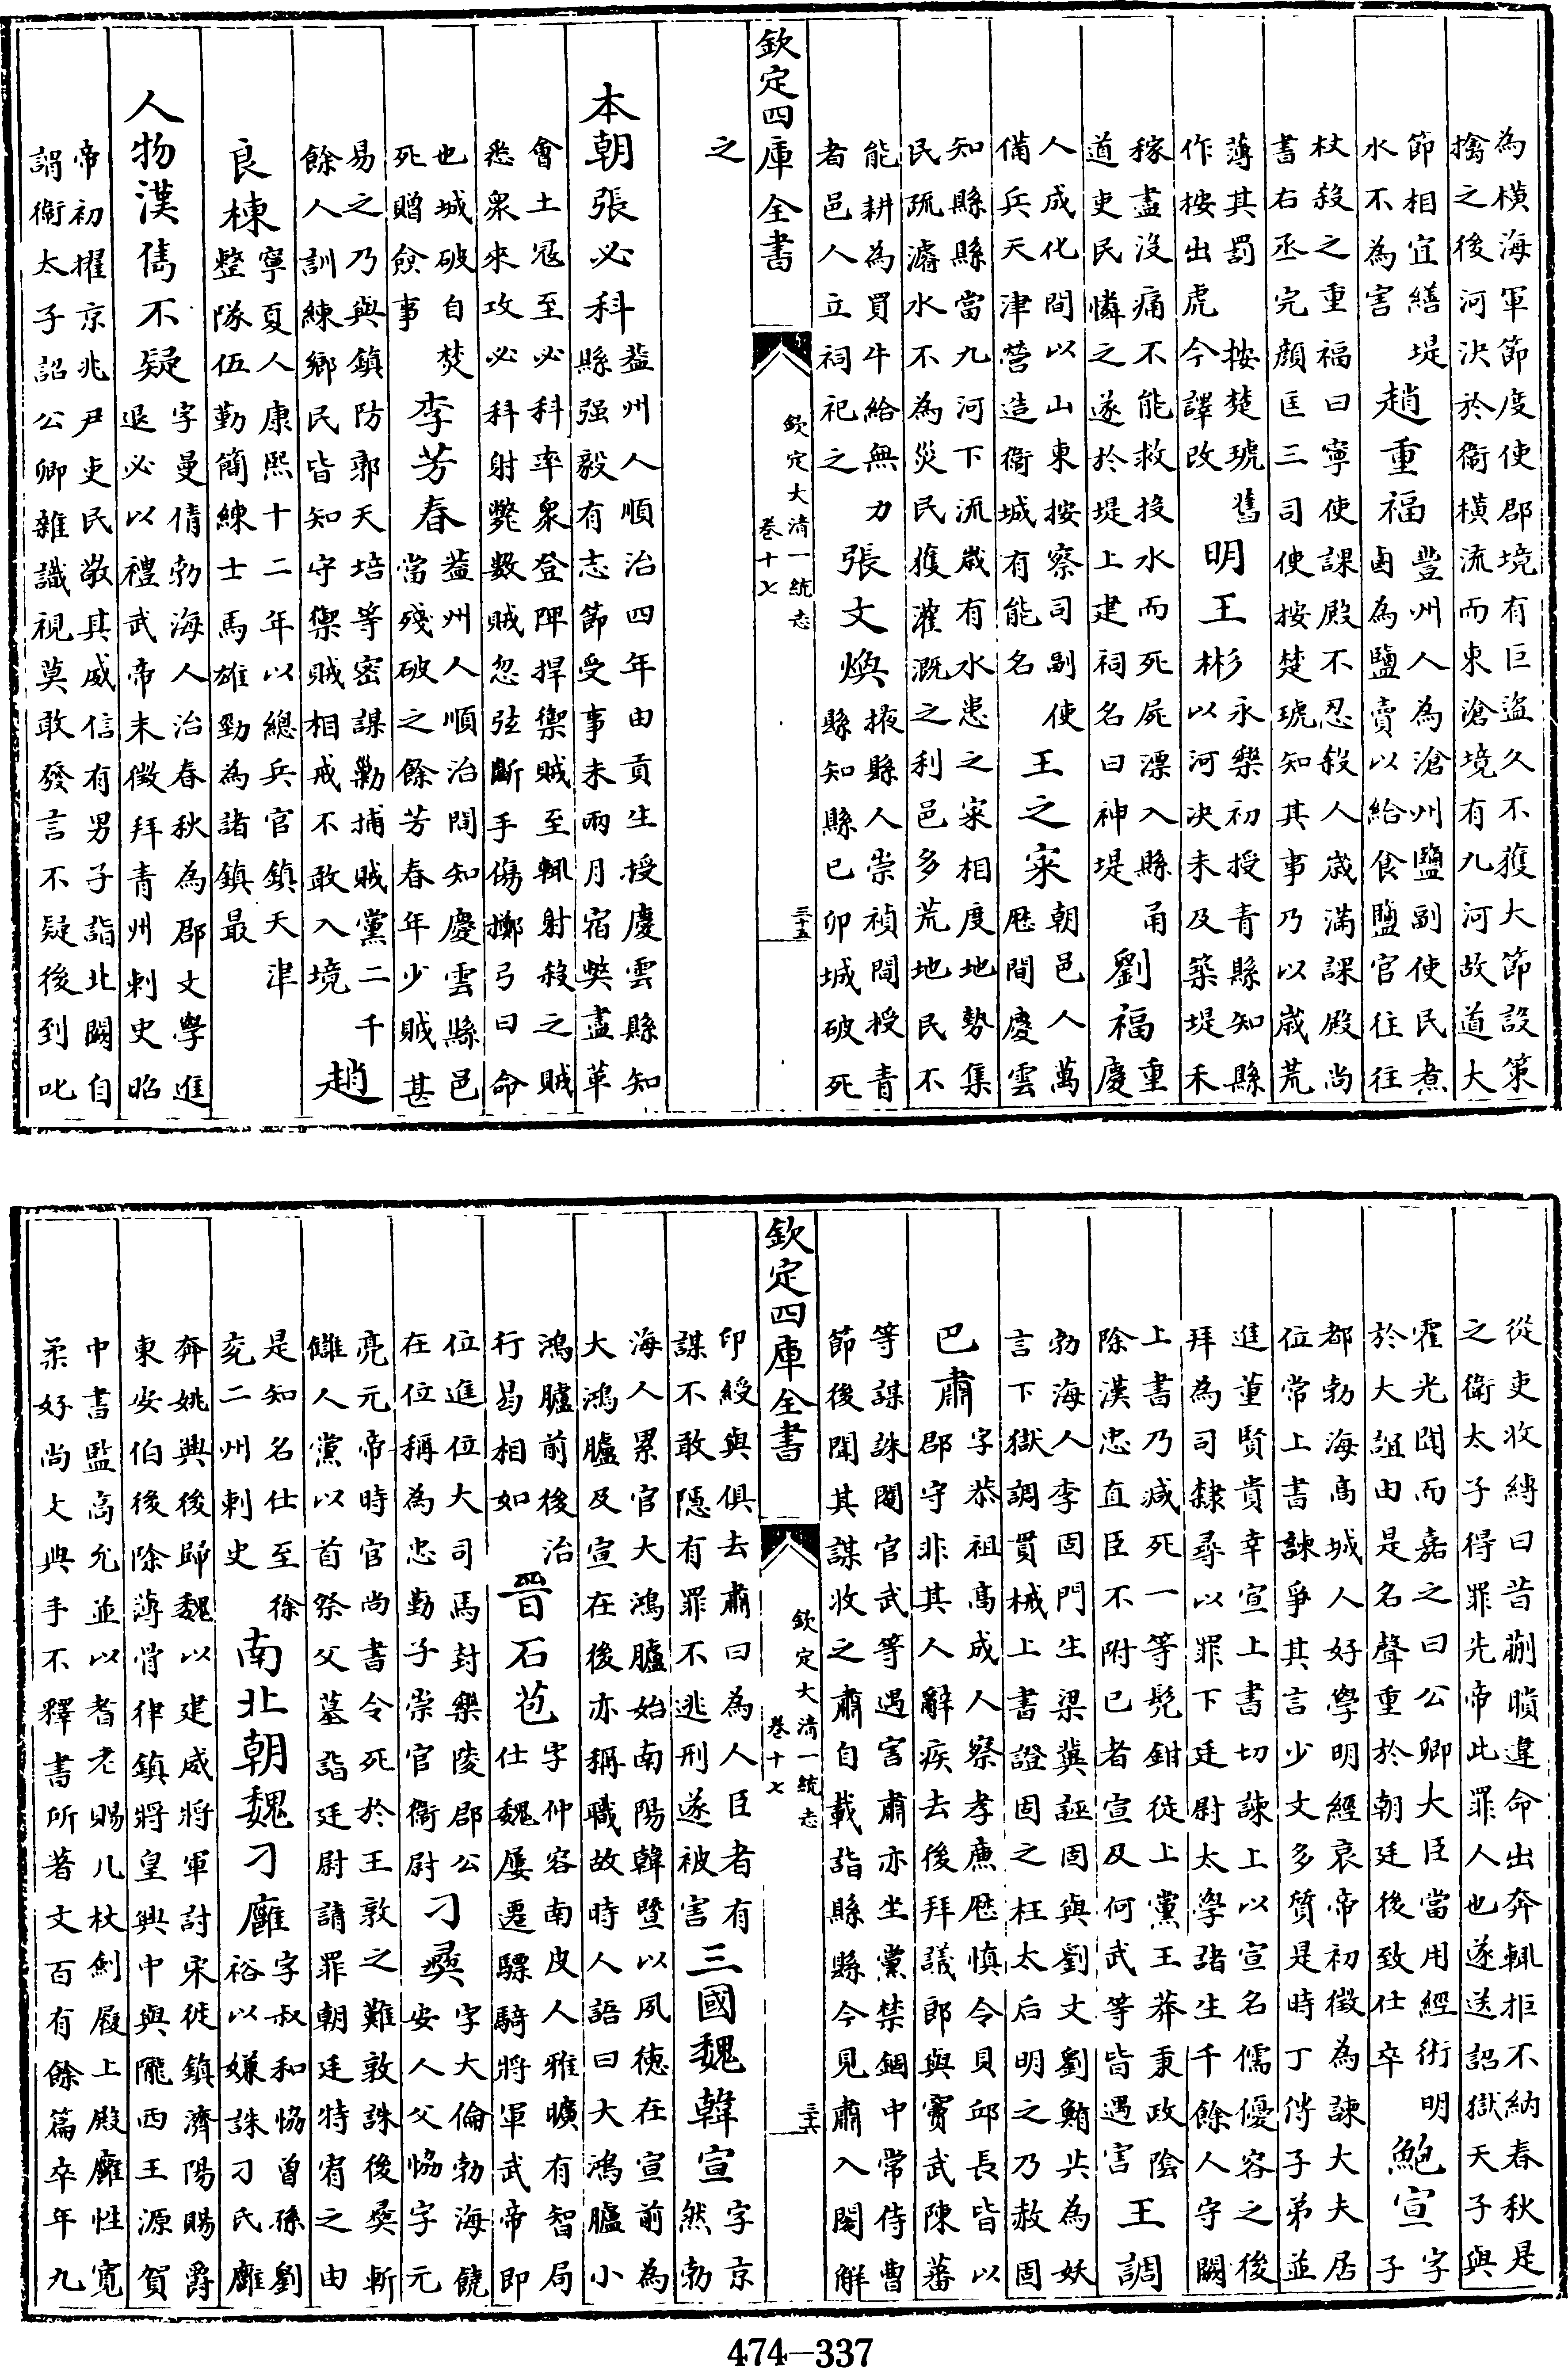 為橫海軍節度使郡境有巨盜久不獲大節設策
擒之後河決於衛橫流而東滄境有九河故道大
節相宜繕堤水不為害趙重福豐州人為滄州鹽副使民煮鹵為鹽賣以給食鹽官往往
杖殺之重福曰寧使課殿不忍殺人歲滿課殿尚
書右丞完顏匡三司使按楚琥知其事乃以歲荒
薄其罰按楚琥舊作按出虎今譯改明王彬永樂初授青縣知縣以河決未及築堤禾
稼盡沒痛不能救投水而死屍漂入縣甬道吏民憐之遂於堤上建祠名曰神堤劉福重慶
人成化間以山東按察司副使備兵天津營造衛城有能名王之寀朝邑人萬歷間慶雲
知縣縣當九河下流歲有水患之寀相度地勢集
民疏濬水不為災民獲灌溉之利邑多荒地民不
能耕為買牛給無力者邑人立祠祀之張文煥掖縣人崇禎間授青縣知縣已卯城破死
欽定四庫全書
欽定大清一統志
卷十七
三十五
之
本朝張必科益州人順治四年由貢生授慶雲縣知縣强毅有志節受事未兩月宿弊盡革
會土宼至必科率衆登陴捍禦賊至輒射殺之賊
悉衆來攻必科射斃數賊忽弦斷手傷擲弓曰命
也城破自焚死贈僉事李芳春益州人順治間知慶雲縣邑當殘破之餘芳春年少賊甚
易之乃與鎮防郭天培等密謀勦捕賊黨二千餘人訓練鄉民皆知守禦賊相戒不敢入境趙
良棟寧夏人康熙十二年以總兵官鎮天津整隊伍勤簡練士馬雄勁為諸鎮最
人物漢雋不疑字曼倩勃海人治春秋為郡文學進退必以禮武帝末徵拜青州刺史昭
帝初擢京兆尹吏民敬其威信有男子詣北闕自
謂衛太子詔公卿雜識視莫敢發言不疑後到叱
從吏收縛曰昔蒯聵違命出奔輒拒不納春秋是
之衛太子得罪先帝此罪人也遂送詔獄天子與
霍光聞而嘉之曰公卿大臣當用經術明於大誼由是名聲重於朝廷後致仕卒鮑宣字子
都勃海高城人好學明經哀帝初徵為諫大夫居
位常上書諫爭其言少文多質是時丁傅子弟並
進董賢貴幸宣上書切諫上以宣名儒優容之後
拜為司隸尋以罪下廷尉太學諸生千餘人守闕
上書乃減死一等髡鉗徙上黨王莽秉政陰除漢忠直臣不附已者宣及何武等皆遇害王調
勃海人李固門生梁冀誣固與劉文劉鮪共為妖
言下獄調貫械上書證固之枉太后明之乃赦固
巴肅字恭祖高成人察孝廉歷慎令貝邱長皆以郡守非其人辭疾去後拜議郎與竇武陳蕃
等謀誅閹官武等遇害肅亦坐黨禁錮中常侍曹
節後聞其謀收之肅自載詣縣縣令見肅入閤解
印綬與俱去肅曰為人臣者有謀不敢隱有罪不逃刑遂被害三國魏韓宣字京然勃
欽定四庫全書
欽定大清一統志
卷十七
三十六
海人累官大鴻臚始南陽韓暨以夙德在宣前為
大鴻臚及宣在後亦稱職故時人語曰大鴻臚小
鴻臚前後治行曷相如晉石苞字仲容南皮人雅曠有智局仕魏屢遷驃騎將軍武帝即
位進位大司馬封樂陵郡公在位稱為忠勤子崇官衛尉刁彝字大倫勃海饒安人父恊字元
亮元帝時官尚書令死於王敦之難敦誅後彝斬
讎人黨以首祭父墓詣廷尉請罪朝廷特宥之由
是知名仕至徐兖二州刺史南北朝魏刁雍字叔和恊曾孫劉裕以嫌誅刁氏雍
奔姚興後歸魏以建威將軍討宋徙鎮濟陽賜爵
東安伯後除薄骨律鎮將皇興中與隴西王源賀
中書監高允並以耆老賜几杖劍履上殿雍性寛
柔好尚文典手不釋書所著文百有餘篇卒年九
474—337